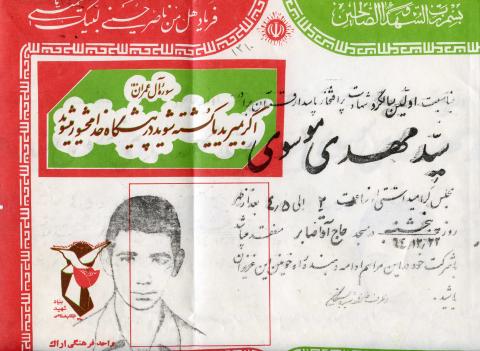 بسم رب الشهداء و الصالحین
فریاد هل من ناصر حسینی لبیک
۱۲۱۰
سوره آل عمران
اگر بمیرید یا کشته شوید در پیشگاه خدا محشور شوید
بمناسبت اولین سالگرد شهادت پر افتخار پاسدار قرآن برادر
سید مهدی موسوی
مجلس گرامیداشتی از ساعت ۲ الی ۴/۵ بعد از ظهر
روز پنجشنبه ۶۴/۱۲/۲۲ در مسجد حاج آقا صابر منعقد میباشد
با شرکت خود در این مراسم ادامه دهنده راه خونین این عزیزان
باشید.
بنیاد
شهید
انقلاب اسلامی
واحد فرهنگی اراک